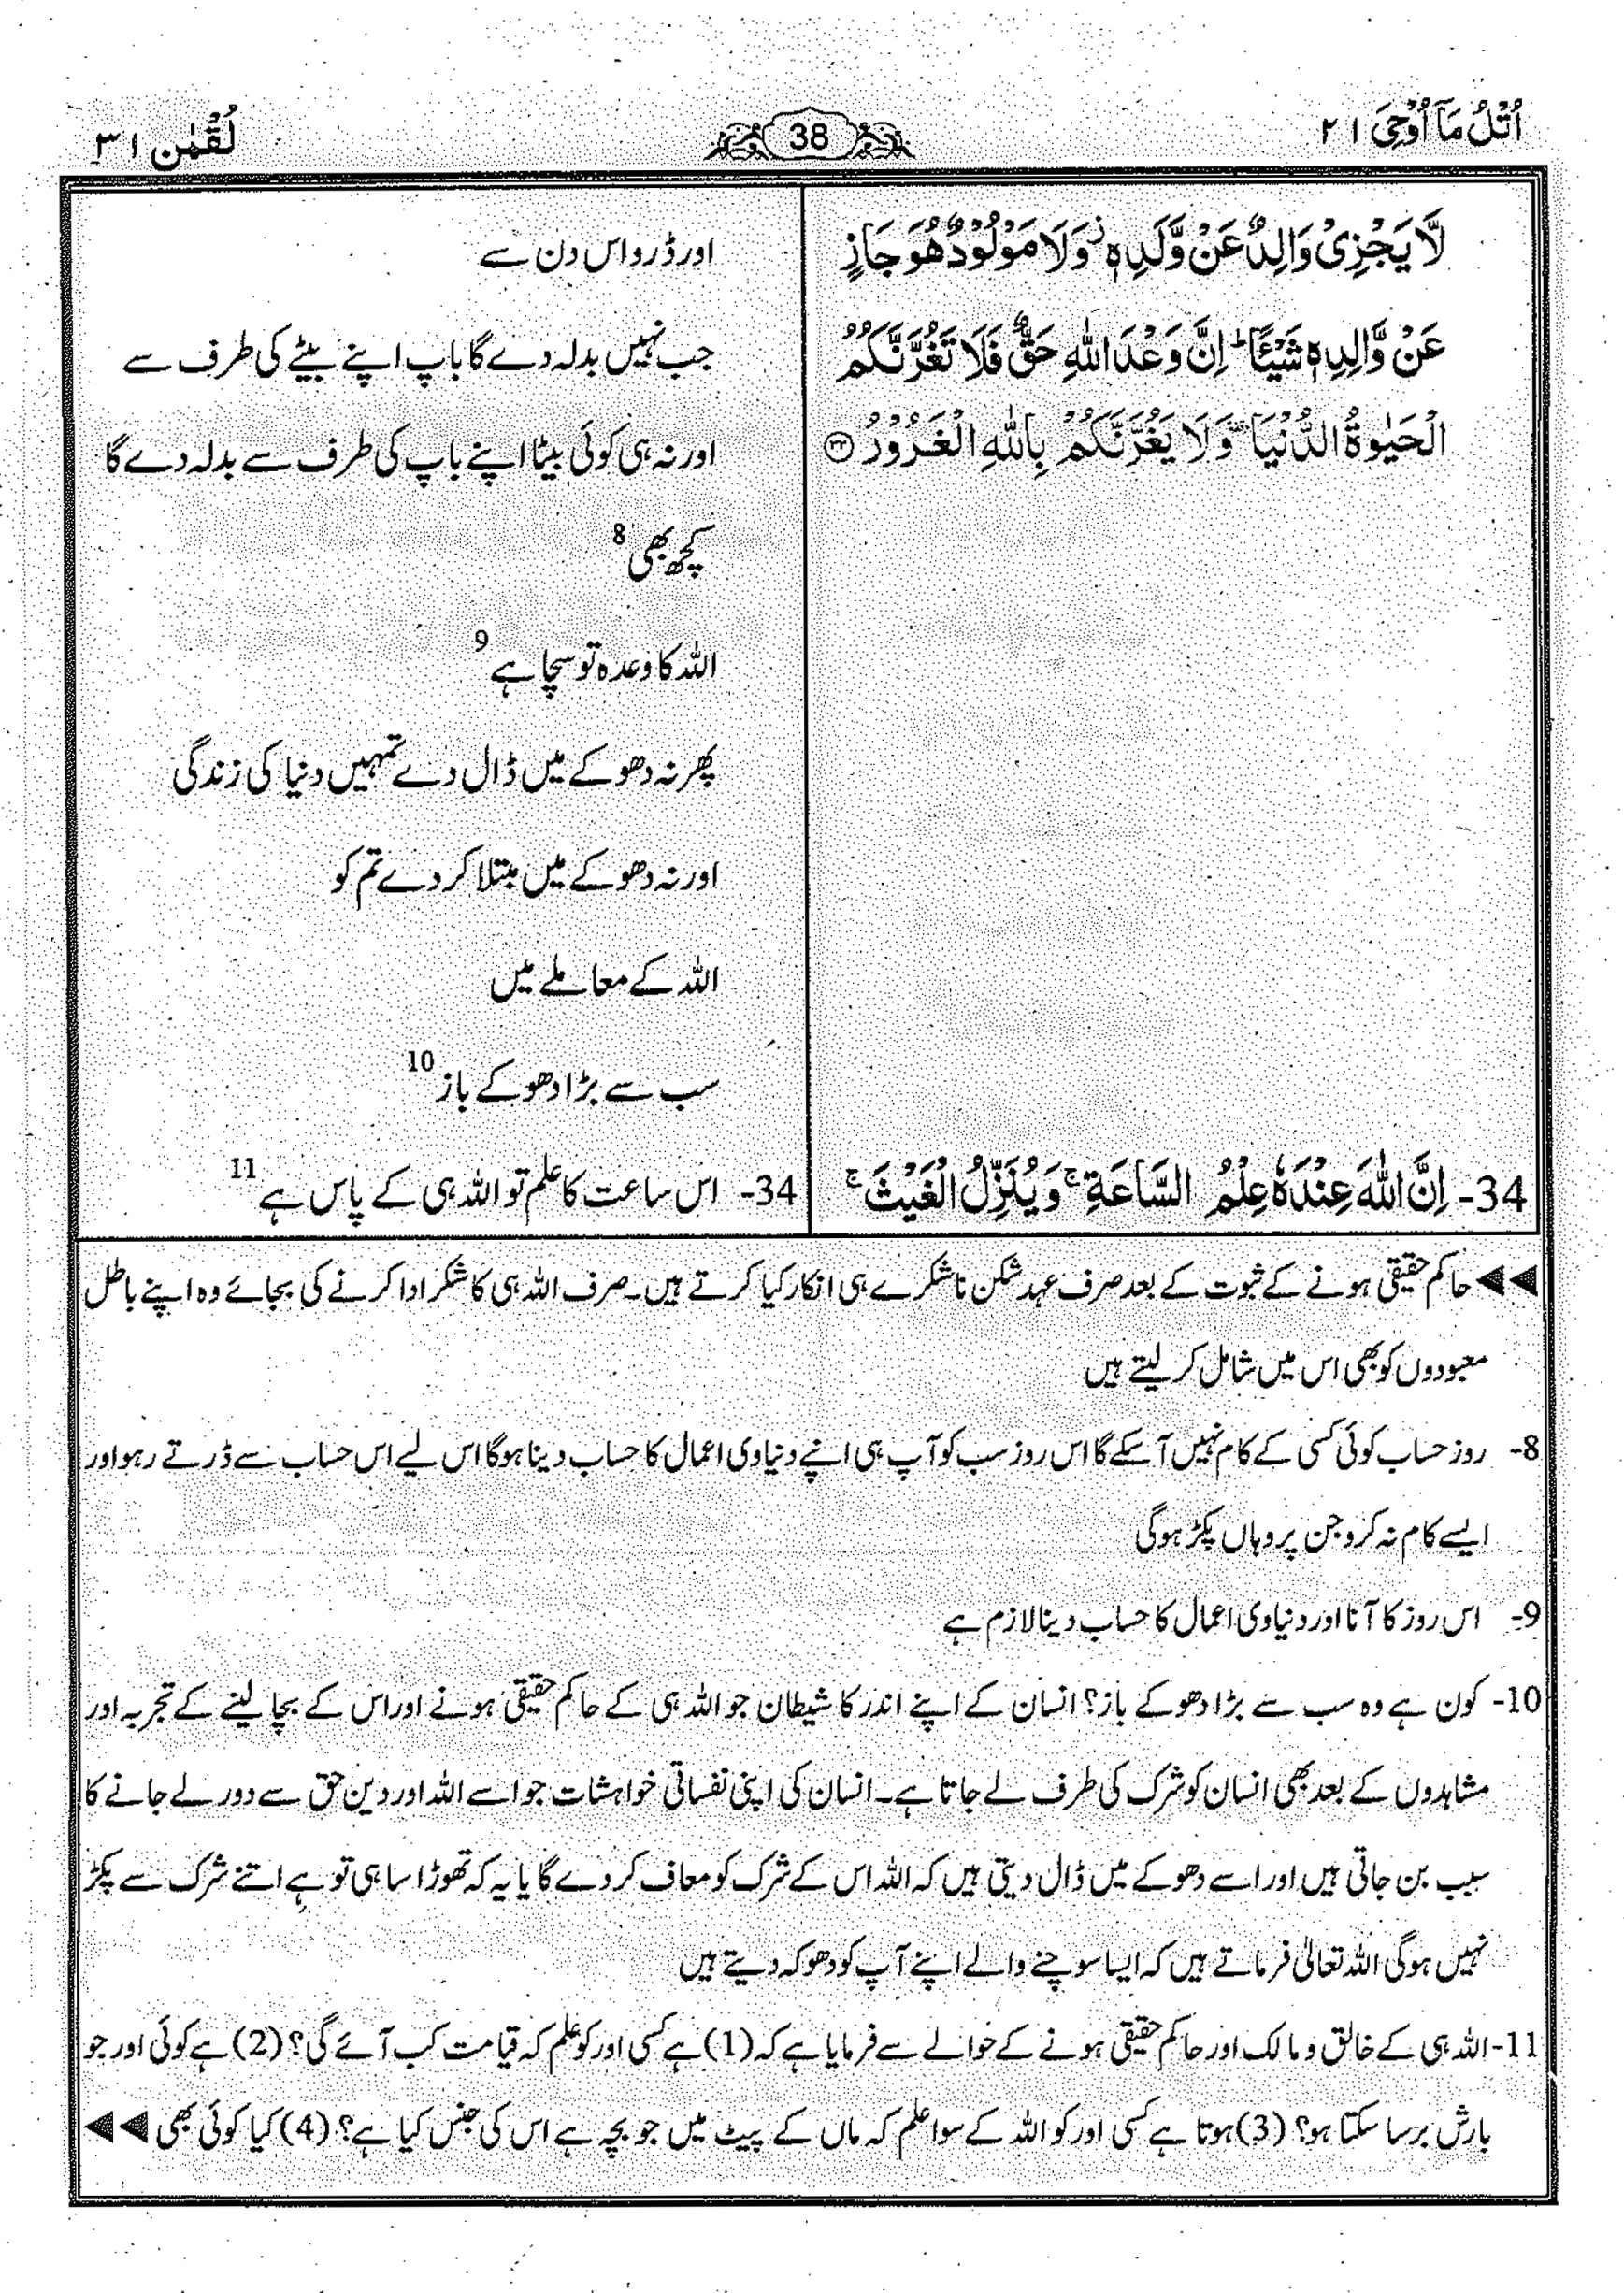 اُتْلُ مَآ اُوْحِیَ ۲۱
38
لُقْمٰن ۳۱
لَّا یَجْزِیْ وَالِدٌ عَنْ وَّلَدِهٖ ؗ وَلَا مَوْلُوْدٌ هُوَ جَازٍ
عَنْ وَّالِدِهٖ شَیْـًٔا ؕ اِنَّ وَعْدَ اللّٰهِ حَقٌّ فَلَا تَغُرَّنَّكُمُ
الْحَیٰوةُ الدُّنْیَا ۥ وَلَا یَغُرَّنَّكُمْ بِاللّٰهِ الْغَرُوْرُ ۝۳۳
34- اِنَّ اللّٰهَ عِنْدَهٗ عِلْمُ السَّاعَةِ ۚ وَیُنَزِّلُ الْغَیْثَ ۚ
اور ڈرو اس دن سے
جب نہیں بدلہ دے گا باپ اپنے بیٹے کی طرف سے
اور نہ ہی کوئی بیٹا اپنے باپ کی طرف سے بدلہ دے گا
کچھ بھی 8
اللہ کا وعدہ تو سچا ہے 9
پھر نہ دھوکے میں ڈال دے تمہیں دنیا کی زندگی
اور نہ دھوکے میں مبتلا کر دے تم کو
اللہ کے معاملے میں
سب سے بڑا دھوکے باز 10
34- اس ساعت کا علم تو اللہ ہی کے پاس ہے 11
◀◀ حاکم حقیقی ہونے کے ثبوت کے بعد صرف عہد شکن ناشکرے ہی انکار کیا کرتے ہیں۔ صرف اللہ ہی کا شکر ادا کرنے کی بجائے وہ اپنے باطل
معبودوں کو بھی اس میں شامل کر لیتے ہیں
8- روز حساب کوئی کسی کے کام نہیں آ سکے گا اس روز سب کو آپ ہی اپنے دنیاوی اعمال کا حساب دینا ہوگا اس لیے اس حساب سے ڈرتے رہو اور
ایسے کام نہ کرو جن پر وہاں پکڑ ہوگی
9- اس روز کا آنا اور دنیاوی اعمال کا حساب دینا لازم ہے
10- کون ہے وہ سب سے بڑا دھوکے باز؟ انسان کے اپنے اندر کا شیطان جو اللہ ہی کے حاکم حقیقی ہونے اور اس کے بچا لینے کے تجربہ اور
مشاہدوں کے بعد بھی انسان کو شرک کی طرف لے جاتا ہے۔ انسان کی اپنی نفسانی خواہشات جو اسے اللہ اور دین حق سے دور لے جانے کا
سبب بن جاتی ہیں اور اسے دھوکے میں ڈال دیتی ہیں کہ اللہ اس کے شرک کو معاف کر دے گا یا یہ کہ تھوڑا سا ہی تو ہے اتنے شرک سے پکڑ
نہیں ہوگی اللہ تعالیٰ فرماتے ہیں کہ ایسا سوچنے والے اپنے آپ کو دھوکہ دیتے ہیں
11- اللہ ہی کے خالق و مالک اور حاکم حقیقی ہونے کے حوالے سے فرمایا ہے کہ (1) ہے کسی اور کو علم کہ قیامت کب آئے گی؟ (2) ہے کوئی اور جو
بارش برسا سکتا ہو؟ (3) ہوتا ہے کسی اور کو اللہ کے سوا علم کہ ماں کے پیٹ میں جو بچہ ہے اس کی جنس کیا ہے؟ (4) کیا کوئی بھی ◀◀